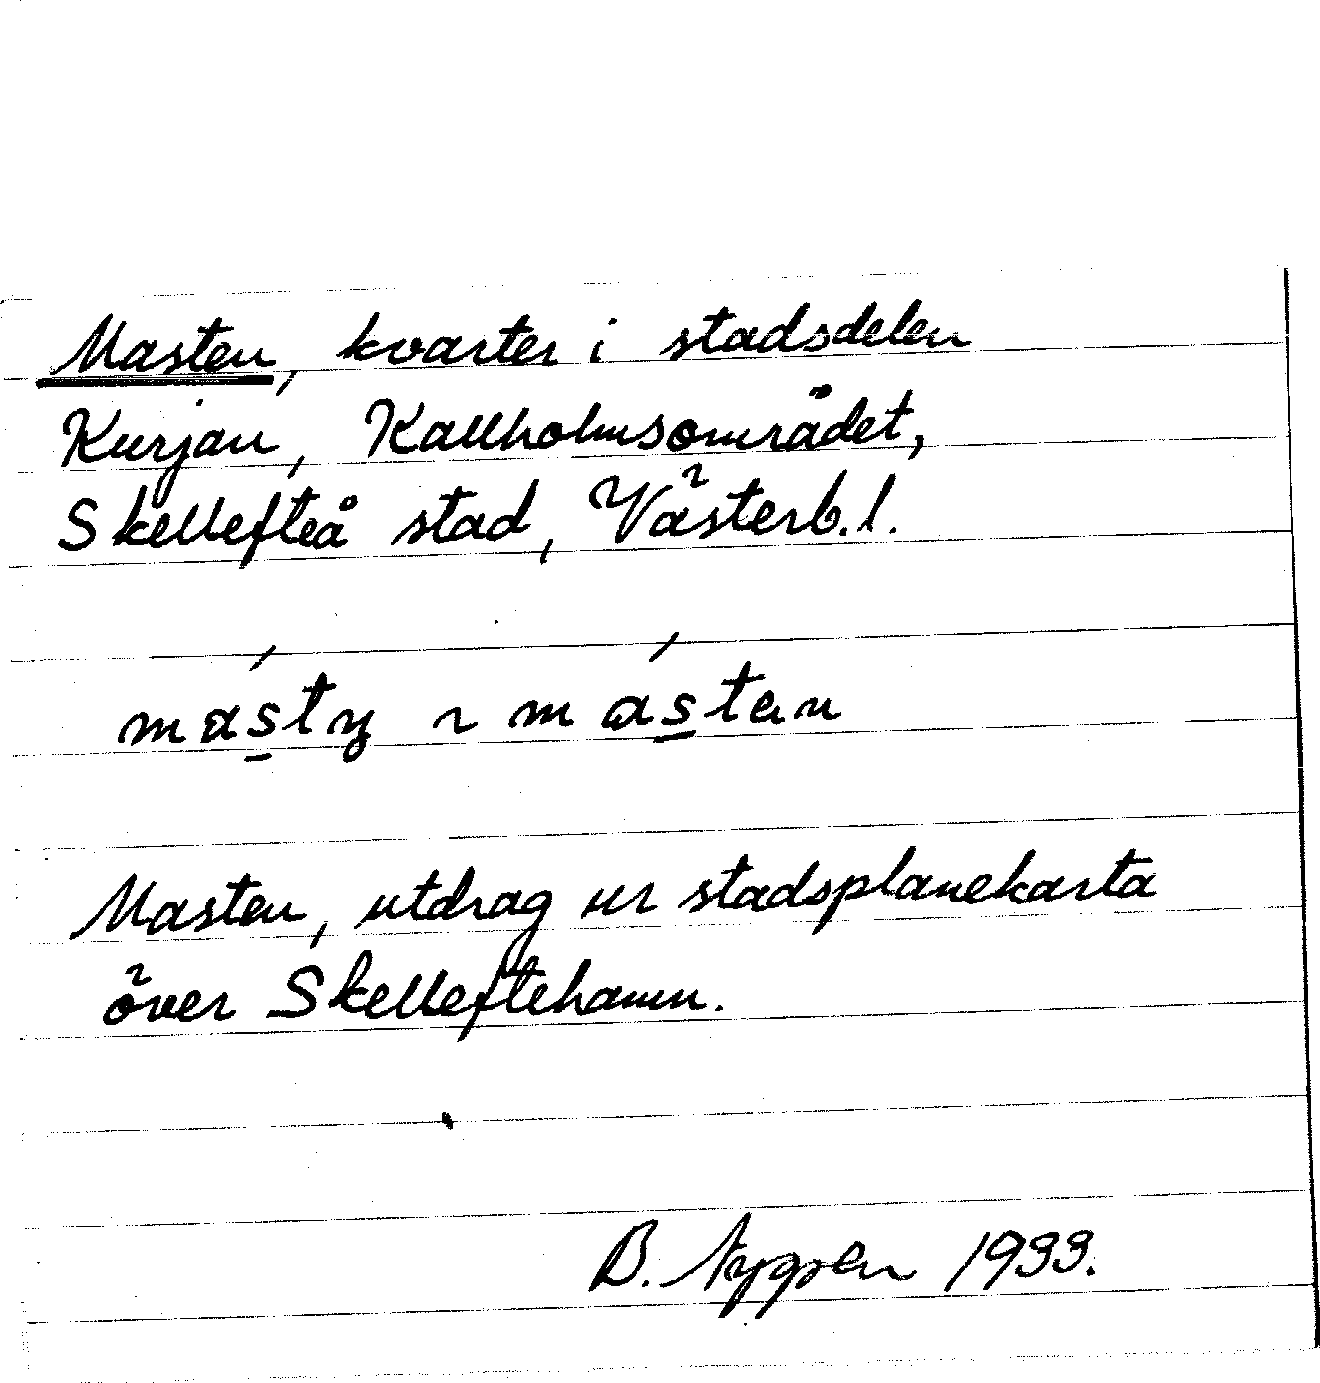 Masten, kvarter i stadsdelen
Kurjan, Kallholmsområdet,
Skellefteå stad, Västerb.l.
mástn̥ ~ mástan
Masten, utdrag ur stadsplanekarta
över Skelleftehamn.
B. Nygren 1933.